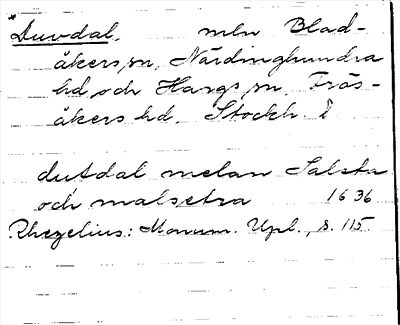 *Duvdal, mln Blad-
åkers sn, Närdinghundra
hd, och Hargs sn, Frös-
åkers hd. Stockh. l
dutdal melan Salsta
och malsetra 1636
Rhezelius: Monum. Upl., s. 115